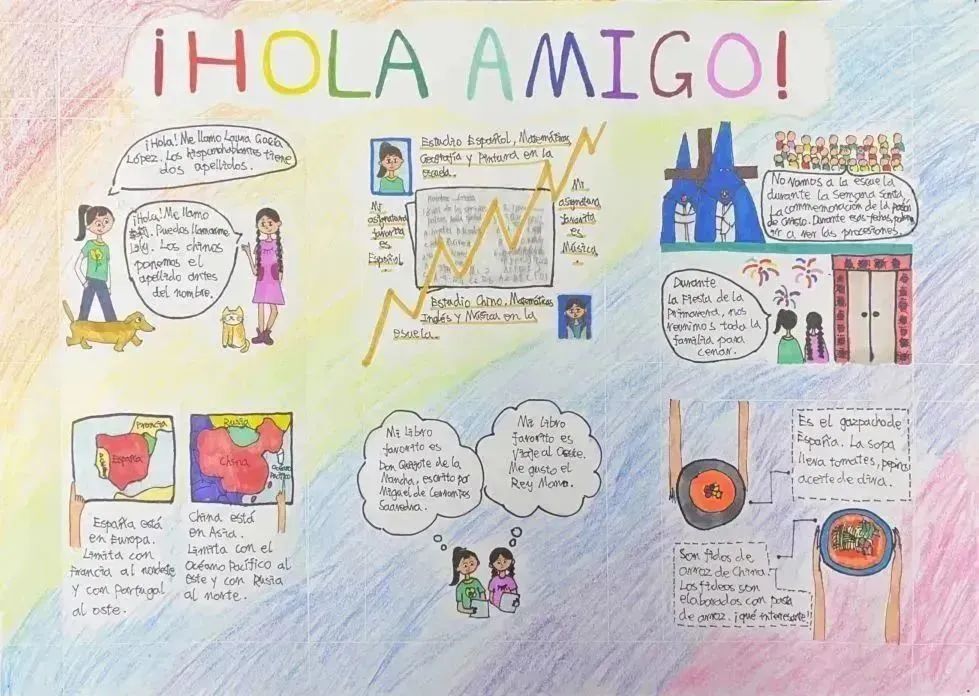 ¡HOLA AMIGO!
¡Hola! Me llamo Laura García
López. Los hispanohablantes tiene
dos apellidos.
¡Hola! Me llamo
Puedes llamarme
Lily. Los chinos
ponemos el
apellido antes
del nombre.
Estudio Español, Matemáticas,
Geografía y Pintura en la
escuela.
Mi
asignatura
favorita
es
Español.
Mi
asignatura
favorita
es
Música.
Estudio Chino, Matemáticas
Inglés y Música en la
escuela.
No vamos a la escuela
durante la Semana Santa
La conmemoración de la pasión
de Cristo. Durante esas fechas,
ir a ver las procesiones.
Durante
la Fiesta de la
Primavera, nos
reunimos toda la
familia para
cenar.
Francia
España
Rusia
China
Océano
Pacífico
España está
en Europa.
Limita con
Francia al nordeste
y con Portugal
al oste.
China está
en Asia.
Limita con el
Océano Pacífico al
este y con Rusia
al norte.
Mi libro
favorito es
Don Quijote de la
Mancha, escrito por
Miguel de Cervantes
Saavedra.
Mi libro
favorito es
Viaje al Oeste.
Me gusto el
Rey Mono.
Es el gazpacho de
España. La sopa
lleva tomates, pepinos
aceite de oliva.
Son fidos de
arroz de China.
Los fideos son
elaborados con pasta
de arroz. ¡qué interesante!